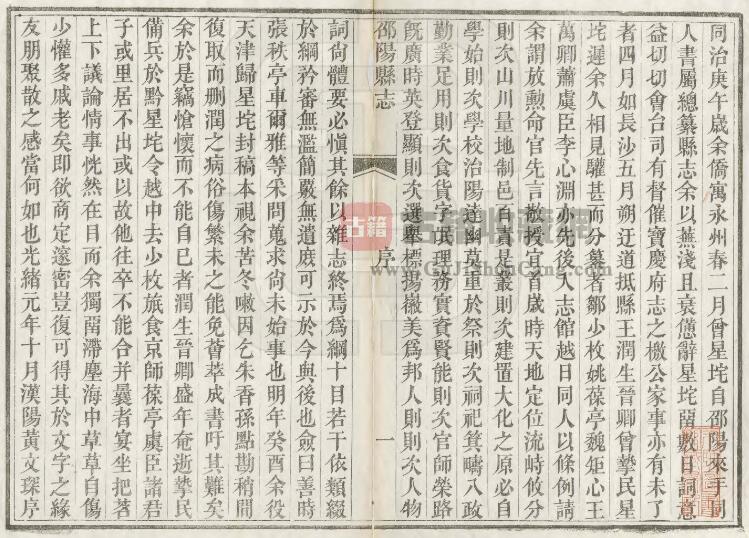 同治庚午歲余僑寓永州春二月曾星垞自邵陽來手同
人書屬總纂縣志余以蕪淺且衰憊辭星垞留數日詞意
益切切會台司有督催寶慶府志之檄公家事亦有未了
者四月如長沙五月朔迂道抵縣王潤生晉卿曾摯民星
垞遲余久相見驩甚而分纂者鄒少枚姚葆亭魏矩心王
萬卿蕭虞臣李心淵亦先後入志館越日同人以條例請
余謂放勲命官先言敬授宜首歲時天地定位流峙攸分
則次山川量地制邑百責是叢則次建置大化之原必自
學始則次學校治陽達幽莫重於祭則次祠祀箕疇八政
勤業足用則次食貨字氓理務實資賢能則次官師榮路
旣廣時英登顯則次選舉標揚徽美爲邦人則則次人物
邵陽縣志
序
一
詞尙體要必愼其餘以雜志終焉爲綱十目若干依類綴
於綱矜審無濫簡嚴無遺庶可示於今與後也僉曰善時
張秩亭車爾雅等采問蒐求尙未始事也明年癸酉余役
天津歸星垞封稿本視余苦冬嗽因乞朱香孫點勘稍閒
復取而刪潤之病俗傷繁未之能免薈萃成書吁其難矣
余於是竊愴懷而不能自已者潤生晉卿盛年奄逝摯民
備兵於黔星垞令越中去少枚旅食京師葆亭虞臣諸君
子或里居不出或以故他往卒不能合并曩者宴坐把茗
上下議論情事恍然在目而余獨留滯塵海中草草自傷
少懽多戚老矣即欲商定邃密豈復可得其於文字之緣
友朋聚散之感當何如也光緒元年十月漢陽黃文琛序
古籍
古籍收藏网
www.GuJiShouCang.com